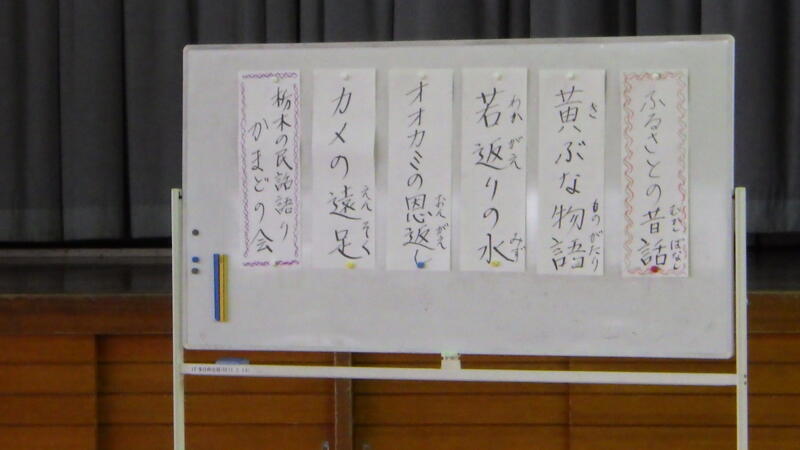 ふるさとの昔話
むかしばなし
黄ぶな物語
き
ものがたり
若返りの水
わかがえ
みず
オオカミの恩返し
おんがえ
カメの遠足
えんそく
栃木の民話語り
かまどの会